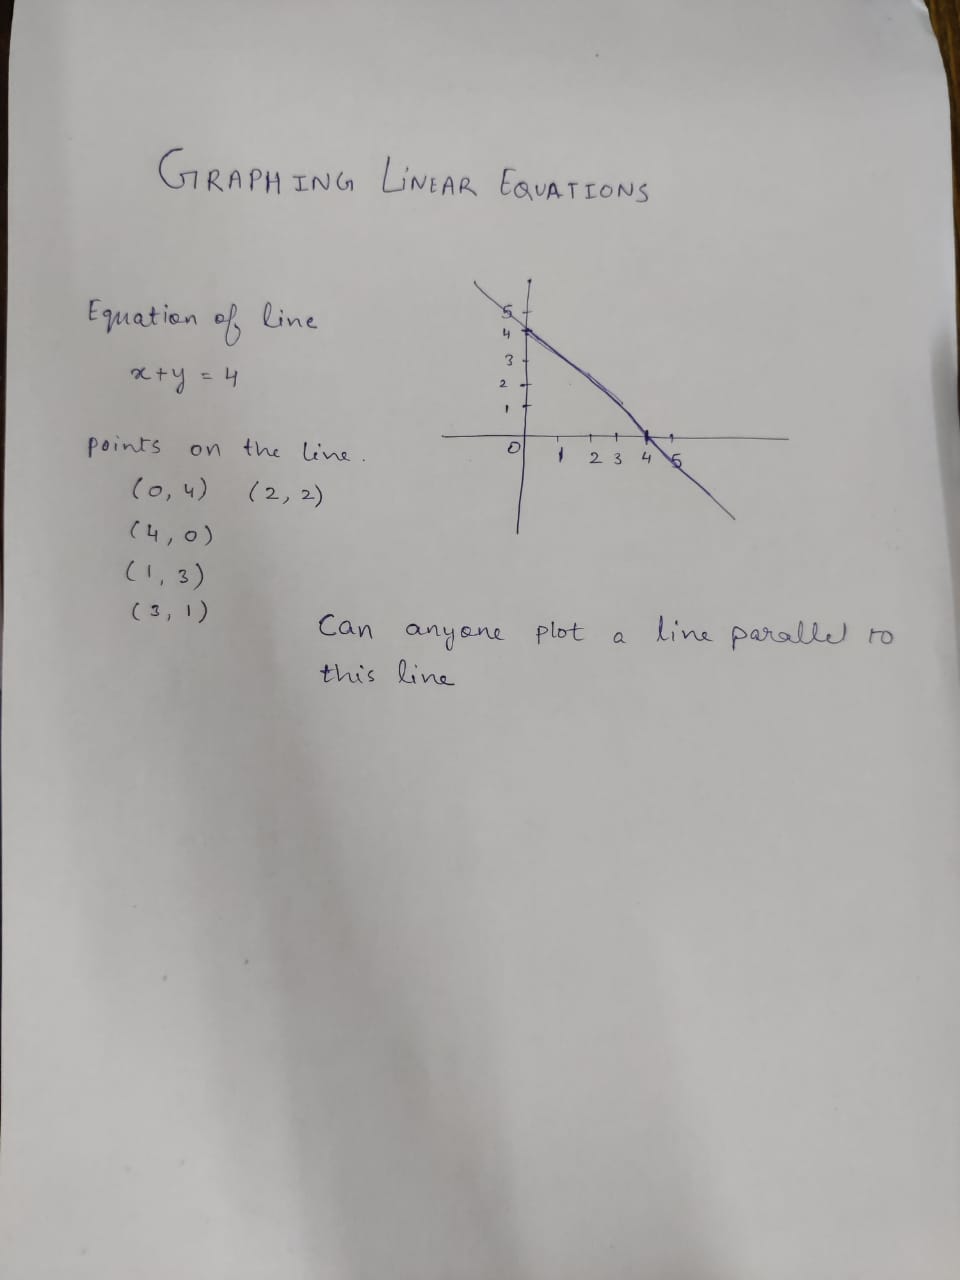 GRAPHING LINEAR EQUATIONS
Equation of line
x+y = 4
points on the line.
(0, 4) (2, 2)
(4, 0)
(1, 3)
(3, 1)
5
4
3
2
1
0 1 2 3 4 5
Can anyone plot a line parallel to
this line